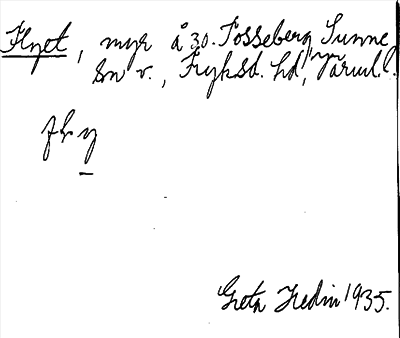 Flyet, myr å 30. Fosseberg, Sunne
sn v., Fryksd. hd, Värml.
fly
Greta Hedin 1935.